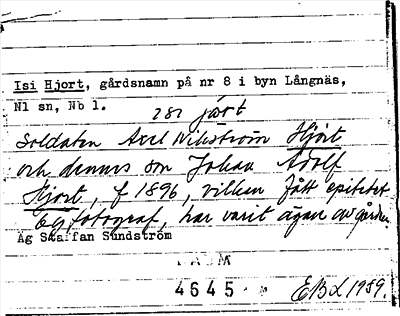 Isi Hjort, gårdsnamn på nr 8 i byn Långnäs,
Nl sn, Nb l.
isi jort
Soldaten Axel Wikström Hjort
och dennes son Johan Adolf
Hjort, f 1896, vilken fått epitetet
fotograf, har varit ägare av gården.
Äg Staffan Sundström
4645
EBL 1989.